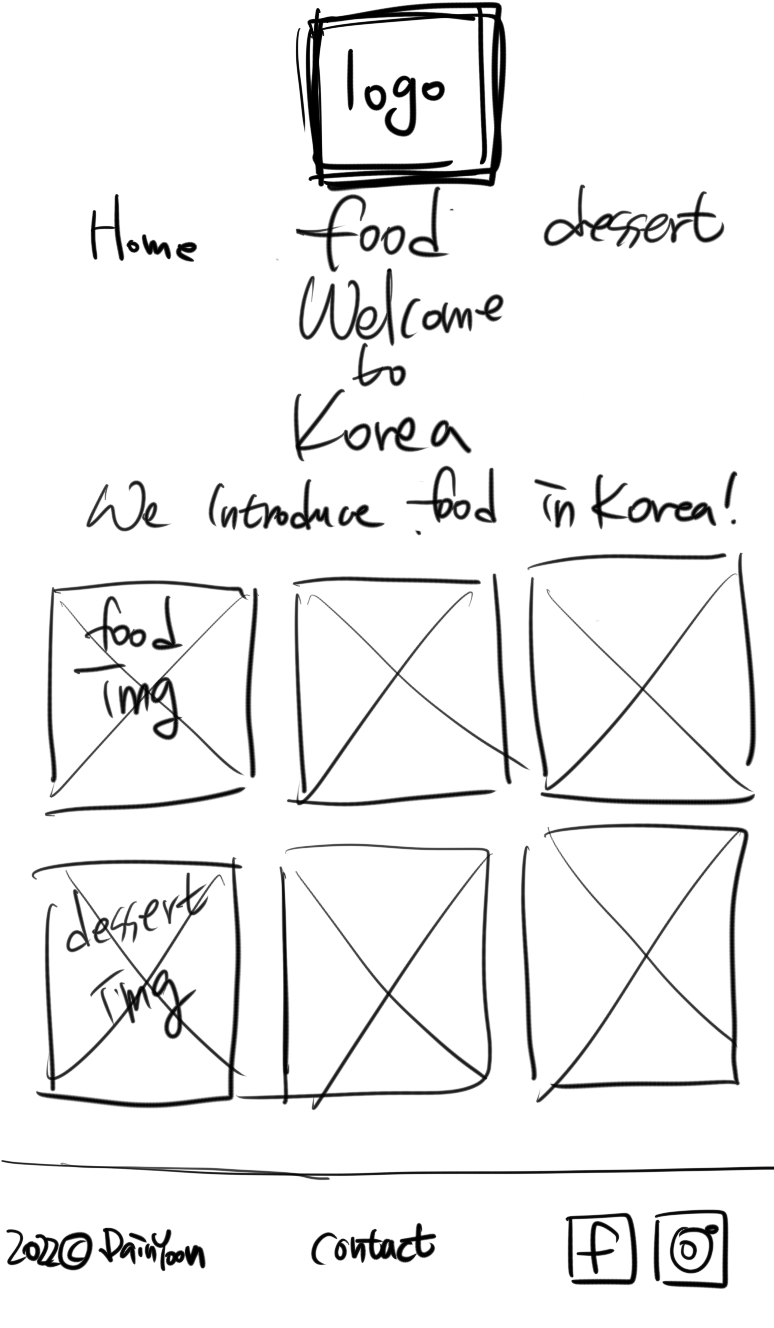 logo
Home food dessert
Welcome
to
Korea
We introduce food in Korea!
food
img
dessert
img
2022© DainYoon contact f